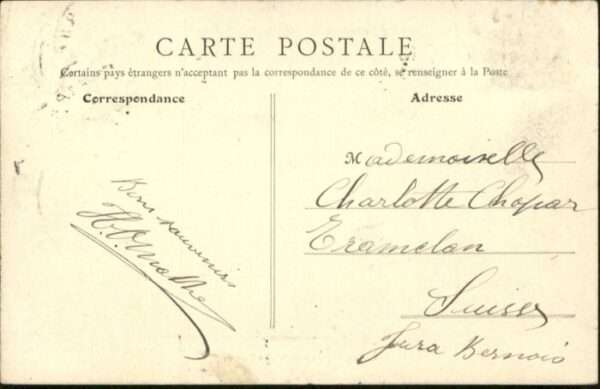 CARTE POSTALE
Certains pays étrangers n'acceptant pas la correspondance de ce côté, se renseigner à la Poste
Correspondance
Adresse
Bons souvenirs
Mademoiselle
Charlotte Chopar
Tramelan
Suisse
Jura Bernois